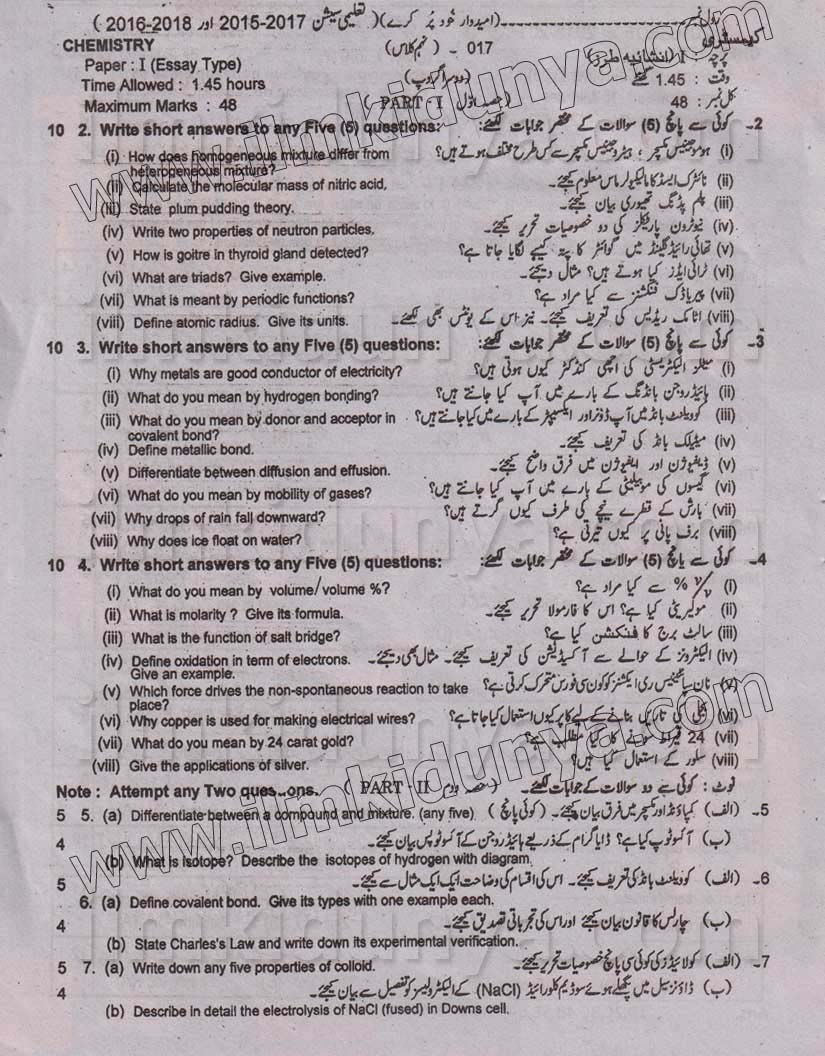 رول نمبر ---------- (امیدوار خُود پُر کرے) (تعلیمی سیشن 2015-2017 اور 2016-2018)
CHEMISTRY 017 - (نہم کلاس) کیمسٹری
Paper : I (Essay Type) پرچہ : I (انشائیہ طرز)
Time Allowed : 1.45 hours (دوسرا گروپ) وقت : 1.45 گھنٹے
Maximum Marks : 48 (PART - I حصہ اول) کل نمبر : 48
10 2. Write short answers to any Five (5) questions: 2۔ کوئی سے پانچ (5) سوالات کے مختصر جوابات لکھئے:
(i) How does homogeneous mixture differ from heterogeneous mixture? (i) ہوموجینیس مکسچر ، ہیٹروجینیس مکسچر سے کس طرح مختلف ہوتے ہیں؟
(ii) Calculate the molecular mass of nitric acid. (ii) نائٹرک ایسڈ کا مالیکیولر ماس معلوم کیجئے۔
(iii) State plum pudding theory. (iii) پلم پڈنگ تھیوری بیان کیجئے۔
(iv) Write two properties of neutron particles. (iv) نیوٹرون پارٹیکلز کی دو خصوصیات تحریر کیجئے۔
(v) How is goitre in thyroid gland detected? (v) تھائی رائیڈ گلینڈ میں گوائٹر کا پتہ کیسے لگایا جاتا ہے؟
(vi) What are triads? Give example. (vi) ٹرائی ایڈز کیا ہوتے ہیں؟ مثال دیجئے۔
(vii) What is meant by periodic functions? (vii) پیریاڈک فنکشنز سے کیا مراد ہے؟
(viii) Define atomic radius. Give its units. (viii) اٹامک ریڈیس کی تعریف کیجئے۔ نیز اس کے یونٹس بھی لکھئے۔
10 3. Write short answers to any Five (5) questions: 3۔ کوئی سے پانچ (5) سوالات کے مختصر جوابات لکھئے:
(i) Why metals are good conductor of electricity? (i) میٹلز الیکٹریسٹی کی اچھی کنڈکٹر کیوں ہوتی ہیں؟
(ii) What do you mean by hydrogen bonding? (ii) ہائیڈروجن بانڈنگ کے بارے میں آپ کیا جانتے ہیں؟
(iii) What do you mean by donor and acceptor in covalent bond? (iii) کوویلنٹ بانڈ میں آپ ڈونر اور ایکسیپٹر کے بارے میں کیا جانتے ہیں؟
(iv) Define metallic bond. (iv) میٹیلک بانڈ کی تعریف کیجئے۔
(v) Differentiate between diffusion and effusion. (v) ڈیفیوژن اور ایفیوژن میں فرق واضح کیجئے۔
(vi) What do you mean by mobility of gases? (vi) گیسوں کی موبیلیٹی کے بارے میں آپ کیا جانتے ہیں؟
(vii) Why drops of rain fall downward? (vii) بارش کے قطرے نیچے کی طرف کیوں گرتے ہیں؟
(viii) Why does ice float on water? (viii) برف پانی پر کیوں تیرتی ہے؟
10 4. Write short answers to any Five (5) questions: 4۔ کوئی سے پانچ (5) سوالات کے مختصر جوابات لکھئے:
(i) What do you mean by volume/volume %? (i) v/v % سے کیا مراد ہے؟
(ii) What is molarity ? Give its formula. (ii) مولیریٹی کیا ہے؟ اس کا فارمولا تحریر کیجئے۔
(iii) What is the function of salt bridge? (iii) سالٹ برج کا فنکشن کیا ہے؟
(iv) Define oxidation in term of electrons. Give an example. (iv) الیکٹرونز کے حوالے سے آکسیڈیشن کی تعریف کیجئے۔ مثال بھی دیجئے۔
(v) Which force drives the non-spontaneous reaction to take place? (v) نان سپانٹینیئس ری ایکشنز کو کون سی فورس متحرک کرتی ہے؟
(vi) Why copper is used for making electrical wires? (vi) بجلی کی تاریں بنانے کے لیے کاپر کیوں استعمال کیا جاتا ہے؟
(vii) What do you mean by 24 carat gold? (vii) 24 قیراط سونے کا کیا مطلب ہے؟
(viii) Give the applications of silver. (viii) سلور کے استعمال کیا ہیں؟
Note : Attempt any Two questions. (PART - II حصہ دوم) نوٹ : کوئی سے دو سوالات کے جوابات لکھئے۔
5 5. (a) Differentiate between a compound and mixture. (any five) 5۔ (الف) کمپاؤنڈ اور مکسچر میں فرق بیان کیجئے۔ (کوئی پانچ)
4 (ب) آئسوٹوپ کیا ہے؟ ڈایا گرام کے ذریعے ہائیڈروجن کے آئسوٹوپس بیان کیجئے۔
(b) What is isotope? Describe the isotopes of hydrogen with diagram.
5 6۔ (الف) کوویلنٹ بانڈ کی تعریف کیجئے۔ اس کی اقسام کی وضاحت ایک ایک مثال سے کیجئے۔
6. (a) Define covalent bond. Give its types with one example each.
4 (ب) چارلس کا قانون بیان کیجئے اور اس کی تجرباتی تصدیق کیجئے۔
(b) State Charles's Law and write down its experimental verification.
5 7. (a) Write down any five properties of colloid. 7۔ (الف) کولائیڈز کی کوئی سی پانچ خصوصیات تحریر کیجئے۔
4 (ب) ڈاؤنز سیل میں پگھلے ہوئے سوڈیم کلورائیڈ (NaCl) کے الیکٹرولیسز کو تفصیل سے بیان کیجئے۔
(b) Describe in detail the electrolysis of NaCl (fused) in Downs cell.
www.ilmkidunya.com
www.ilmkidunya.com
ilmkidunya.com
ilmkidunya.com
ilmkidunya.com